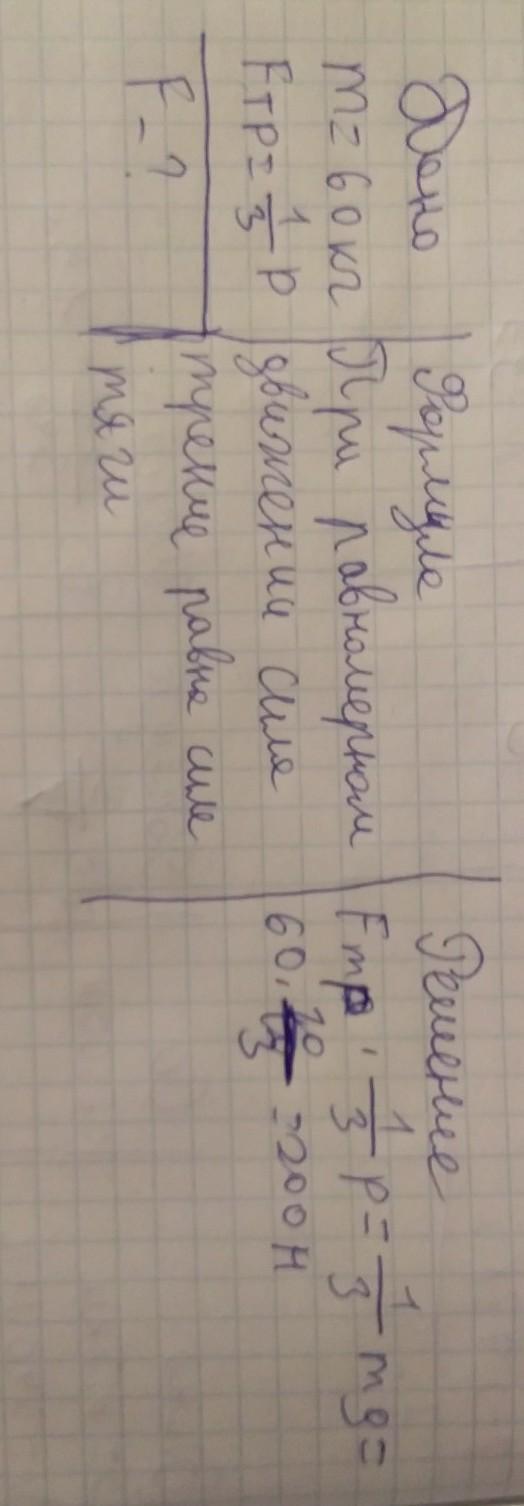 Дано
m = 60 кг
Fтр = 1/3 p
F - ?
Формула
При равномерном
движении сила
трение равна силе
тяги
Решение
Fтр · 1/3 p = 1/3 mg =
60 · 10/3 = 200 Н